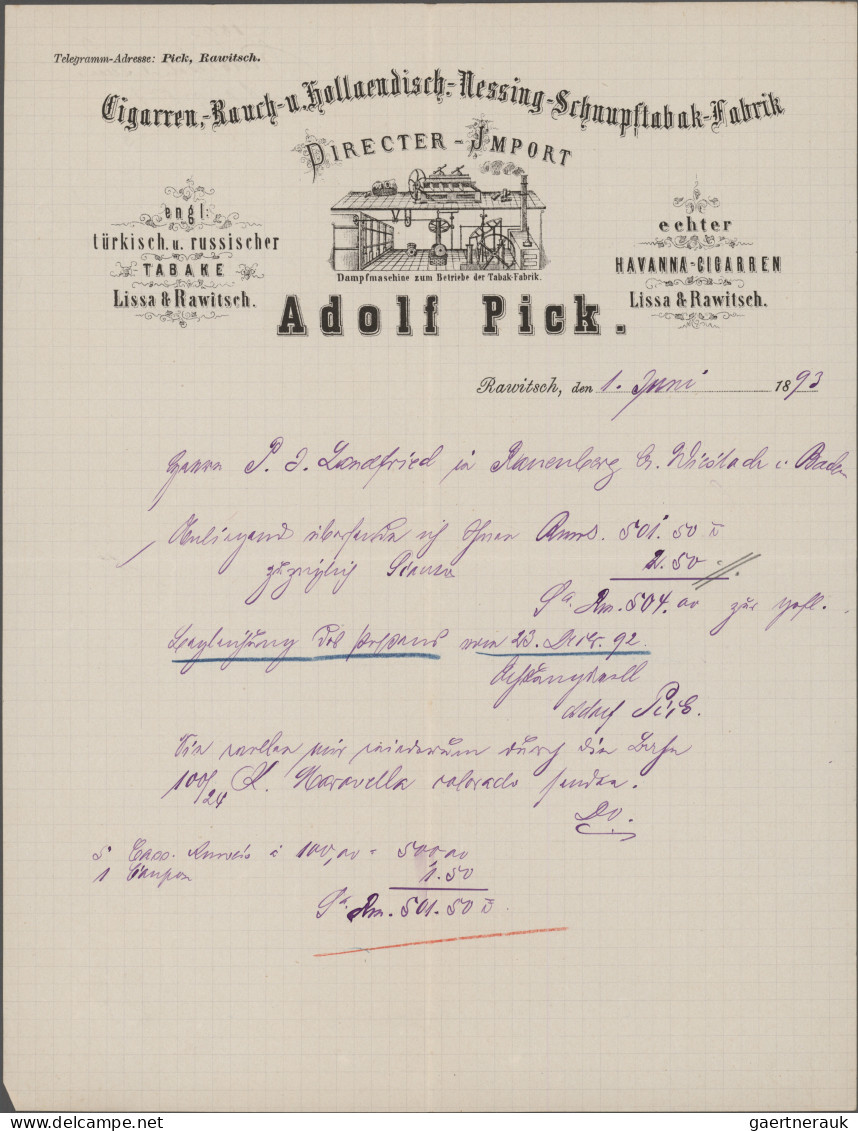 Telegramm-Adresse: Pick, Rawitsch.
Cigarren,-Rauch-u. Hollaendisch-Nessing-Schnupftabak-Fabrik
DIRECTER-IMPORT
engl:
türkisch. u. russischer
TABAKE
Lissa & Rawitsch.
Dampfmaschine zum Betriebe der Tabak-Fabrik.
echter
HAVANNA-CIGARREN
Lissa & Rawitsch.
Adolf Pick.
Rawitsch, den 1. Juni 1893
Herrn P. J. Landfried in Rauenberg b. Wiesloch i Baden
Anliegend übersende ich Ihnen 501.50
zuzüglich 2.50
Sa. Rm. 504.00 zur gefl.
Begleichung des Postens vom 23. 92.
Achtungsvoll
Adolf Pick.
Sie wollen mir wiederum durch die Bahn
100/24 K. Maravella colorado senden.
Do.
5 Cass. à 100,00 = 500,00
1 Coupon 1.50
Sa. Rm. 501.50
gaertnerauk